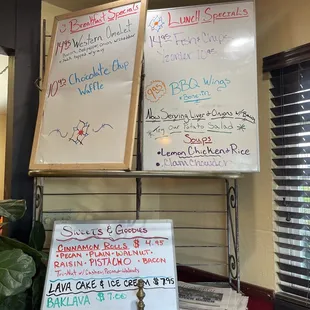 Breakfast Specials
14.95 Western Omelet
10.95 Chocolate Chip
Waffle
Lunch Specials
Fish & Chips
BBQ Wings
Now Serving Liver & Onions w/ Bacon
Try Our Potato Salad
Soups
Lemon Chicken & Rice
Clam Chowder
Sweets & Goodys
Cinnamon Rolls $4.95
Pecan - Plain - Walnut
Raisin - Pistachio - Bacon
Lava Cake & Ice Cream $7.95
Baklava